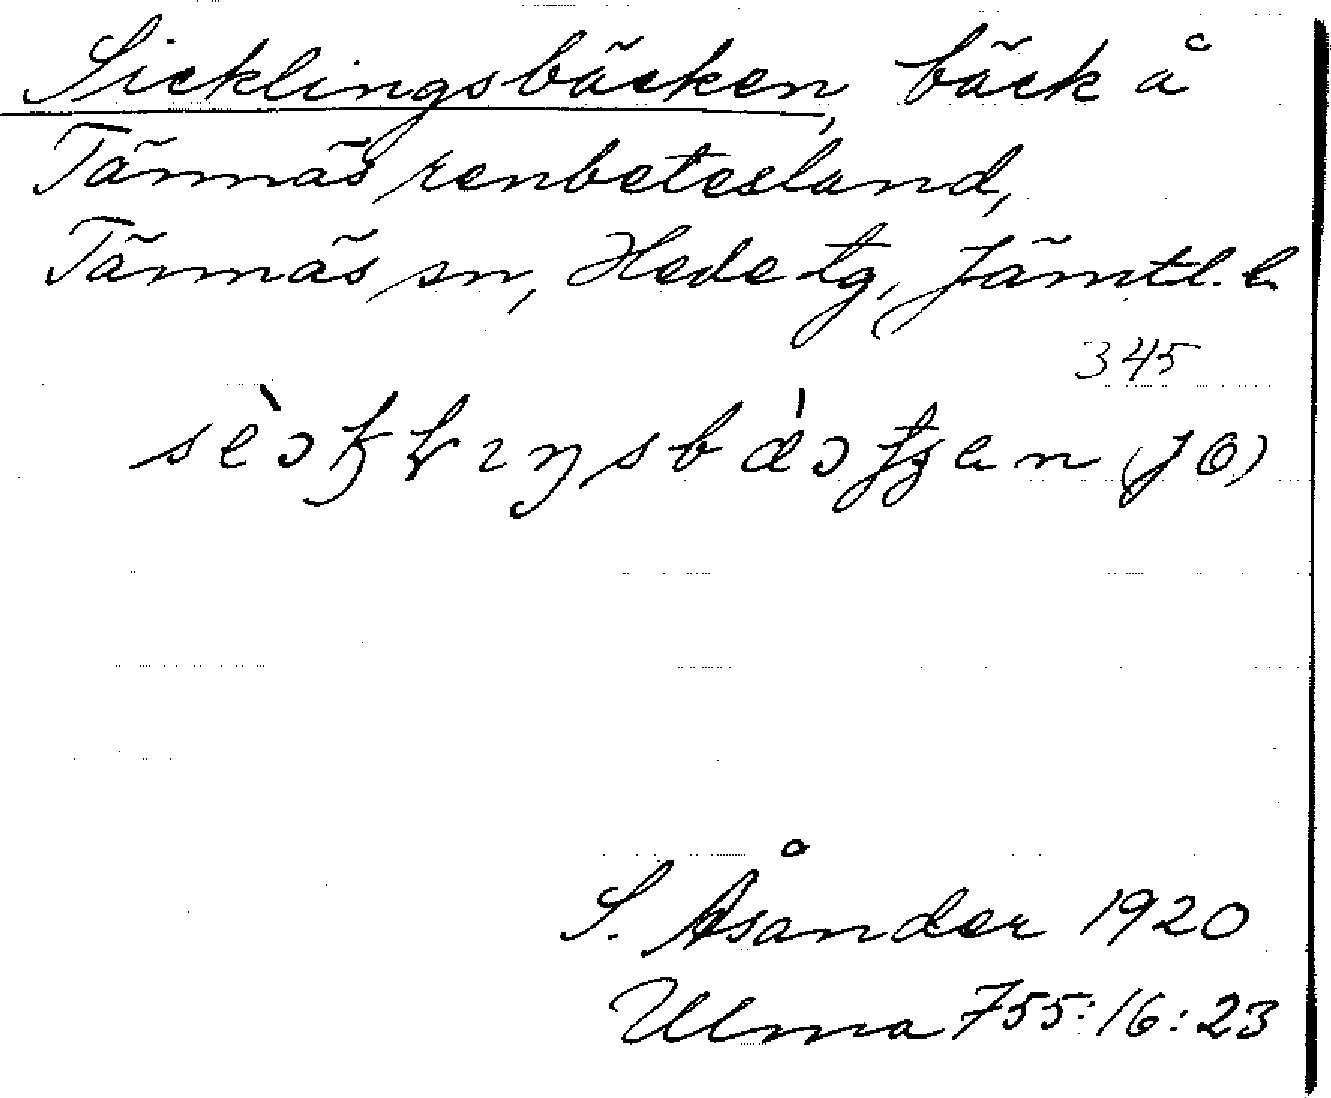 Sicklingsbäcken, bäck å
Tännäs renbetesland,
Tännäs sn, Hede tg, Jämtl. l.
345
S. Åsander 1920
Ulma 755:16:23